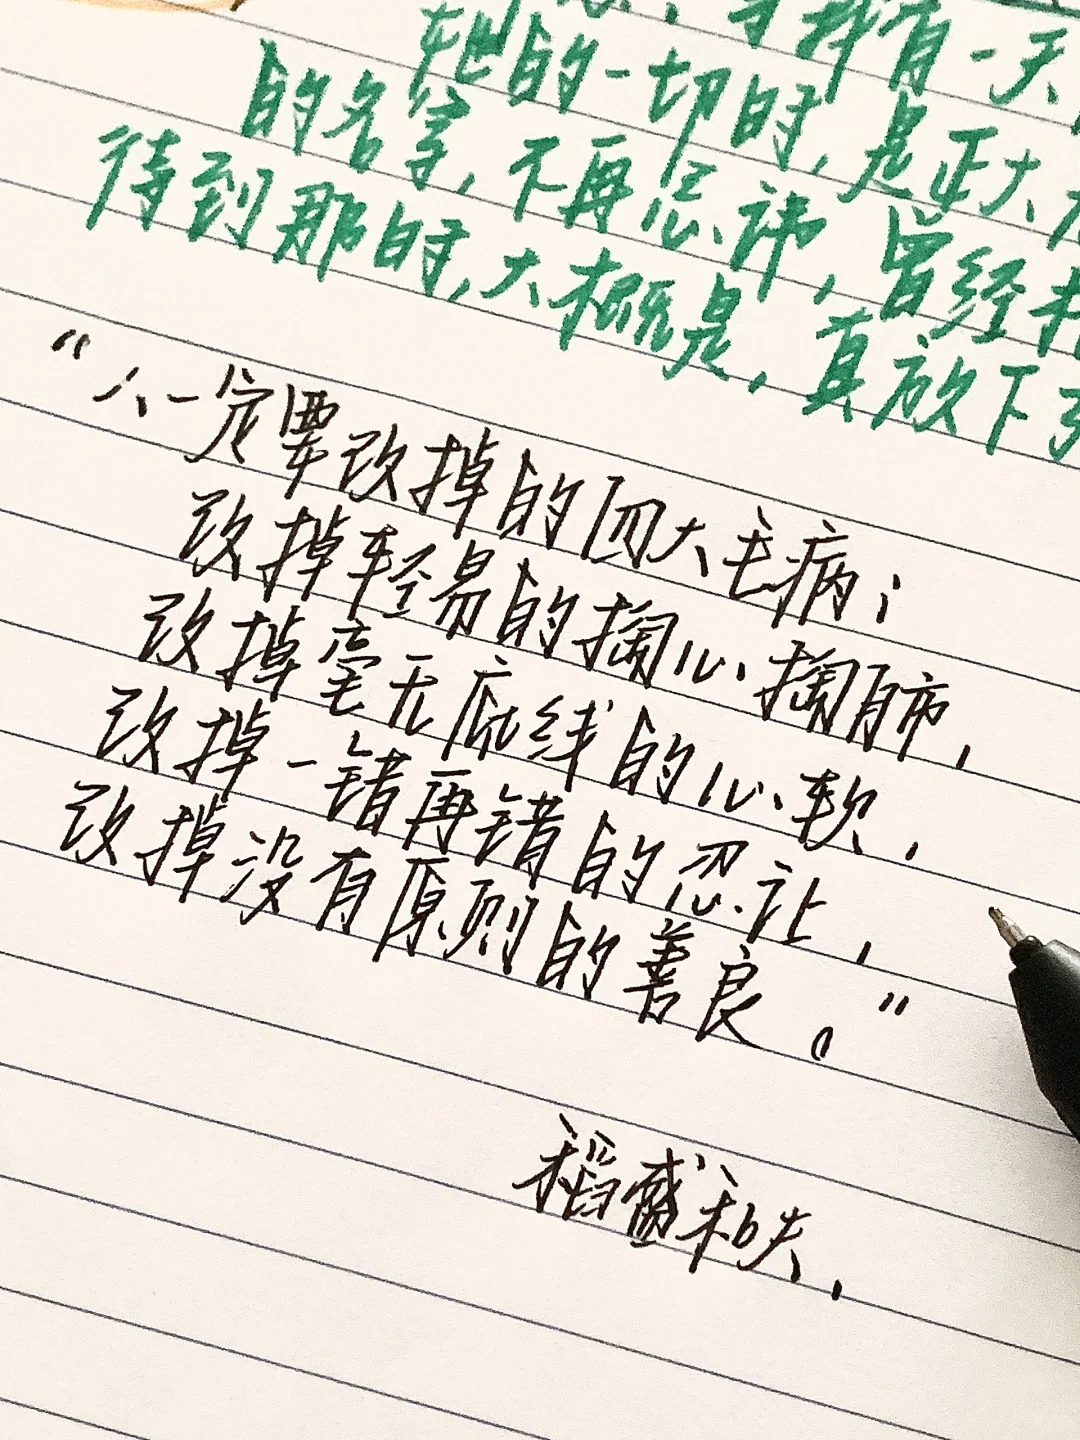 有一天
她的一切时，是正大
的名字，不再忌讳，曾经
待到那时，大概是，真放下
“人一定要改掉的四大毛病；
改掉轻易的掏心掏肺，
改掉毫无底线的心软，
改掉一错再错的忍让，
改掉没有原则的善良。”
稻盛和夫、